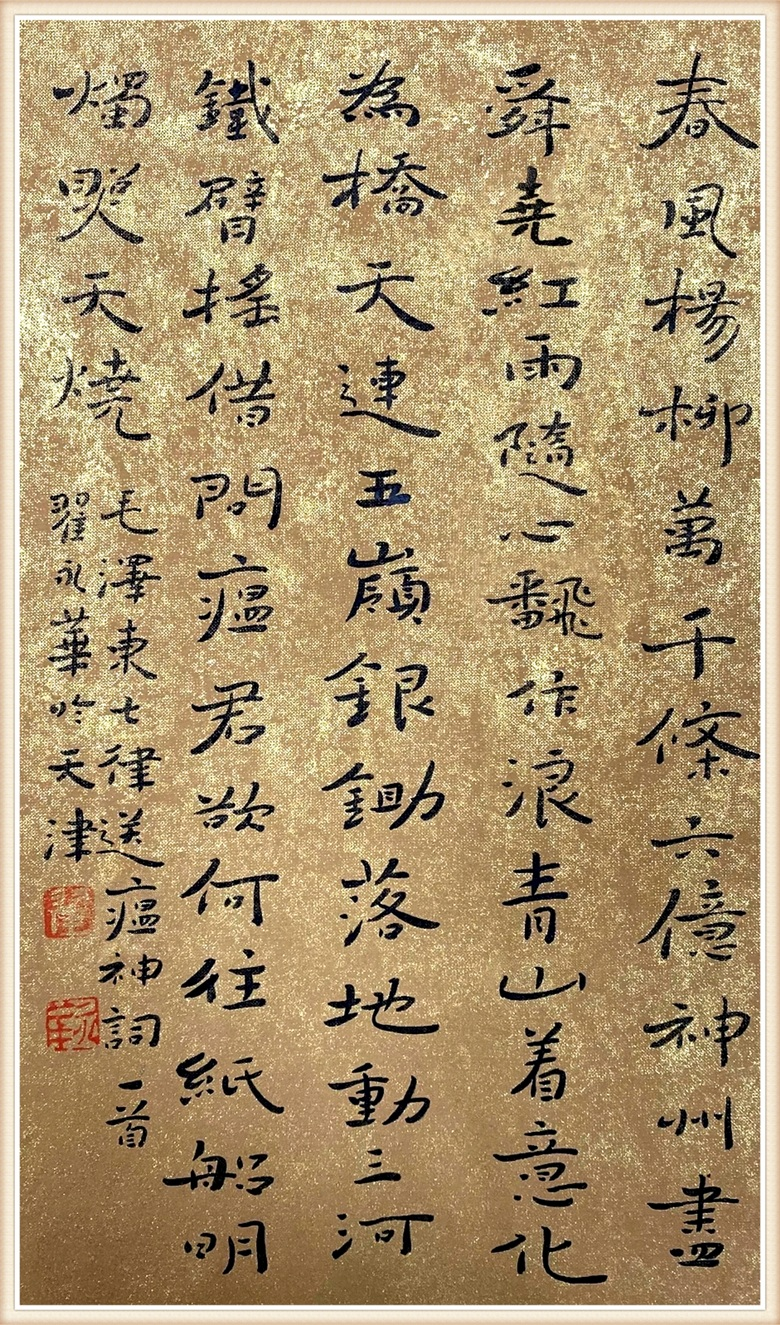 春風楊柳萬千條六億神州盡
舜堯紅雨隨心飜作浪青山着意化
為橋天連五嶺銀鋤落地動三河
鐵臂搖借問瘟君欲何往紙船明
燭照天燒
毛澤東七律送瘟神詞一首
翟永華吟天津